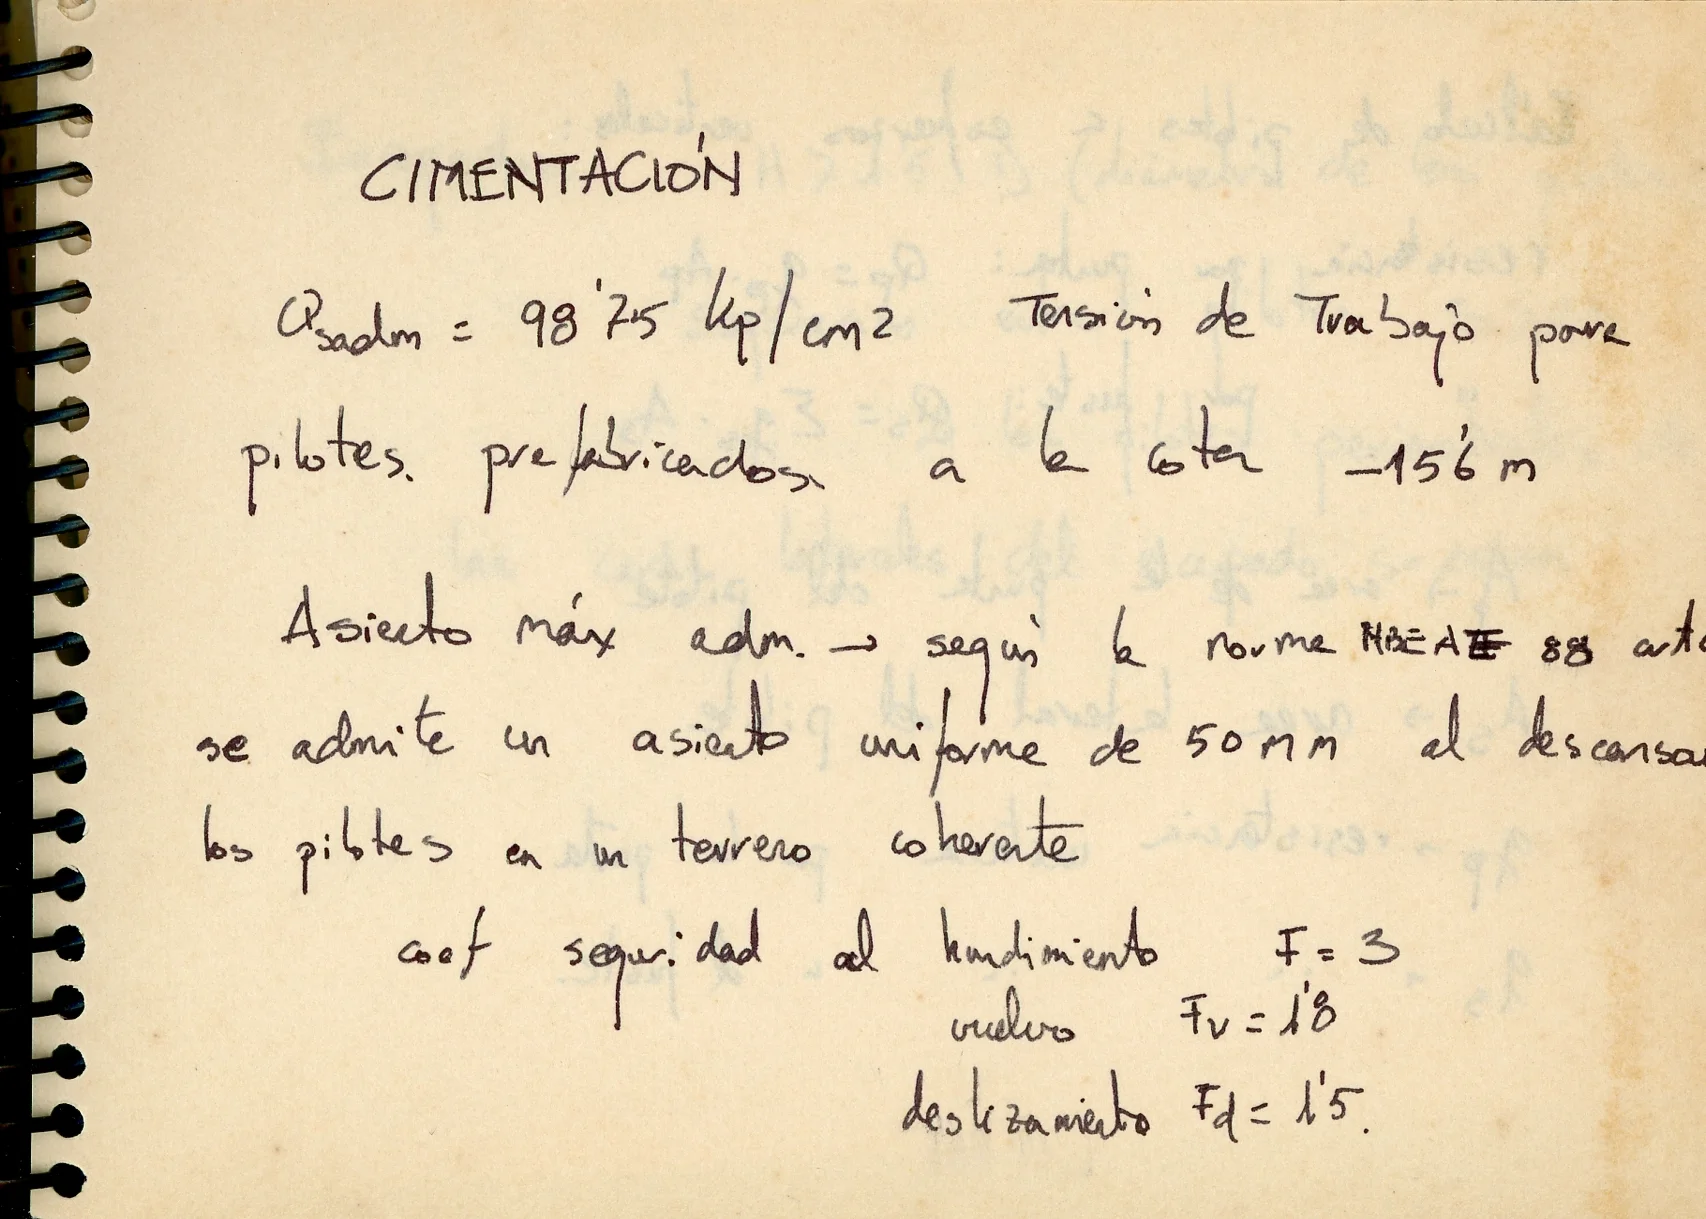 CIMENTACIÓN
Qsadm = 98'75 kp/cm2 Tensión de Trabajo para
pilotes. prefabricados a la cota -15'6 m
Asiento máx adm. → según la norma NBE AE 88
se admite un asiento uniforme de 50 mm al descansar
los pilotes en un terreno coherente
coef seguridad al hundimiento F = 3
vuelco Fv = 1'8
deslizamiento Fd = 1'5.